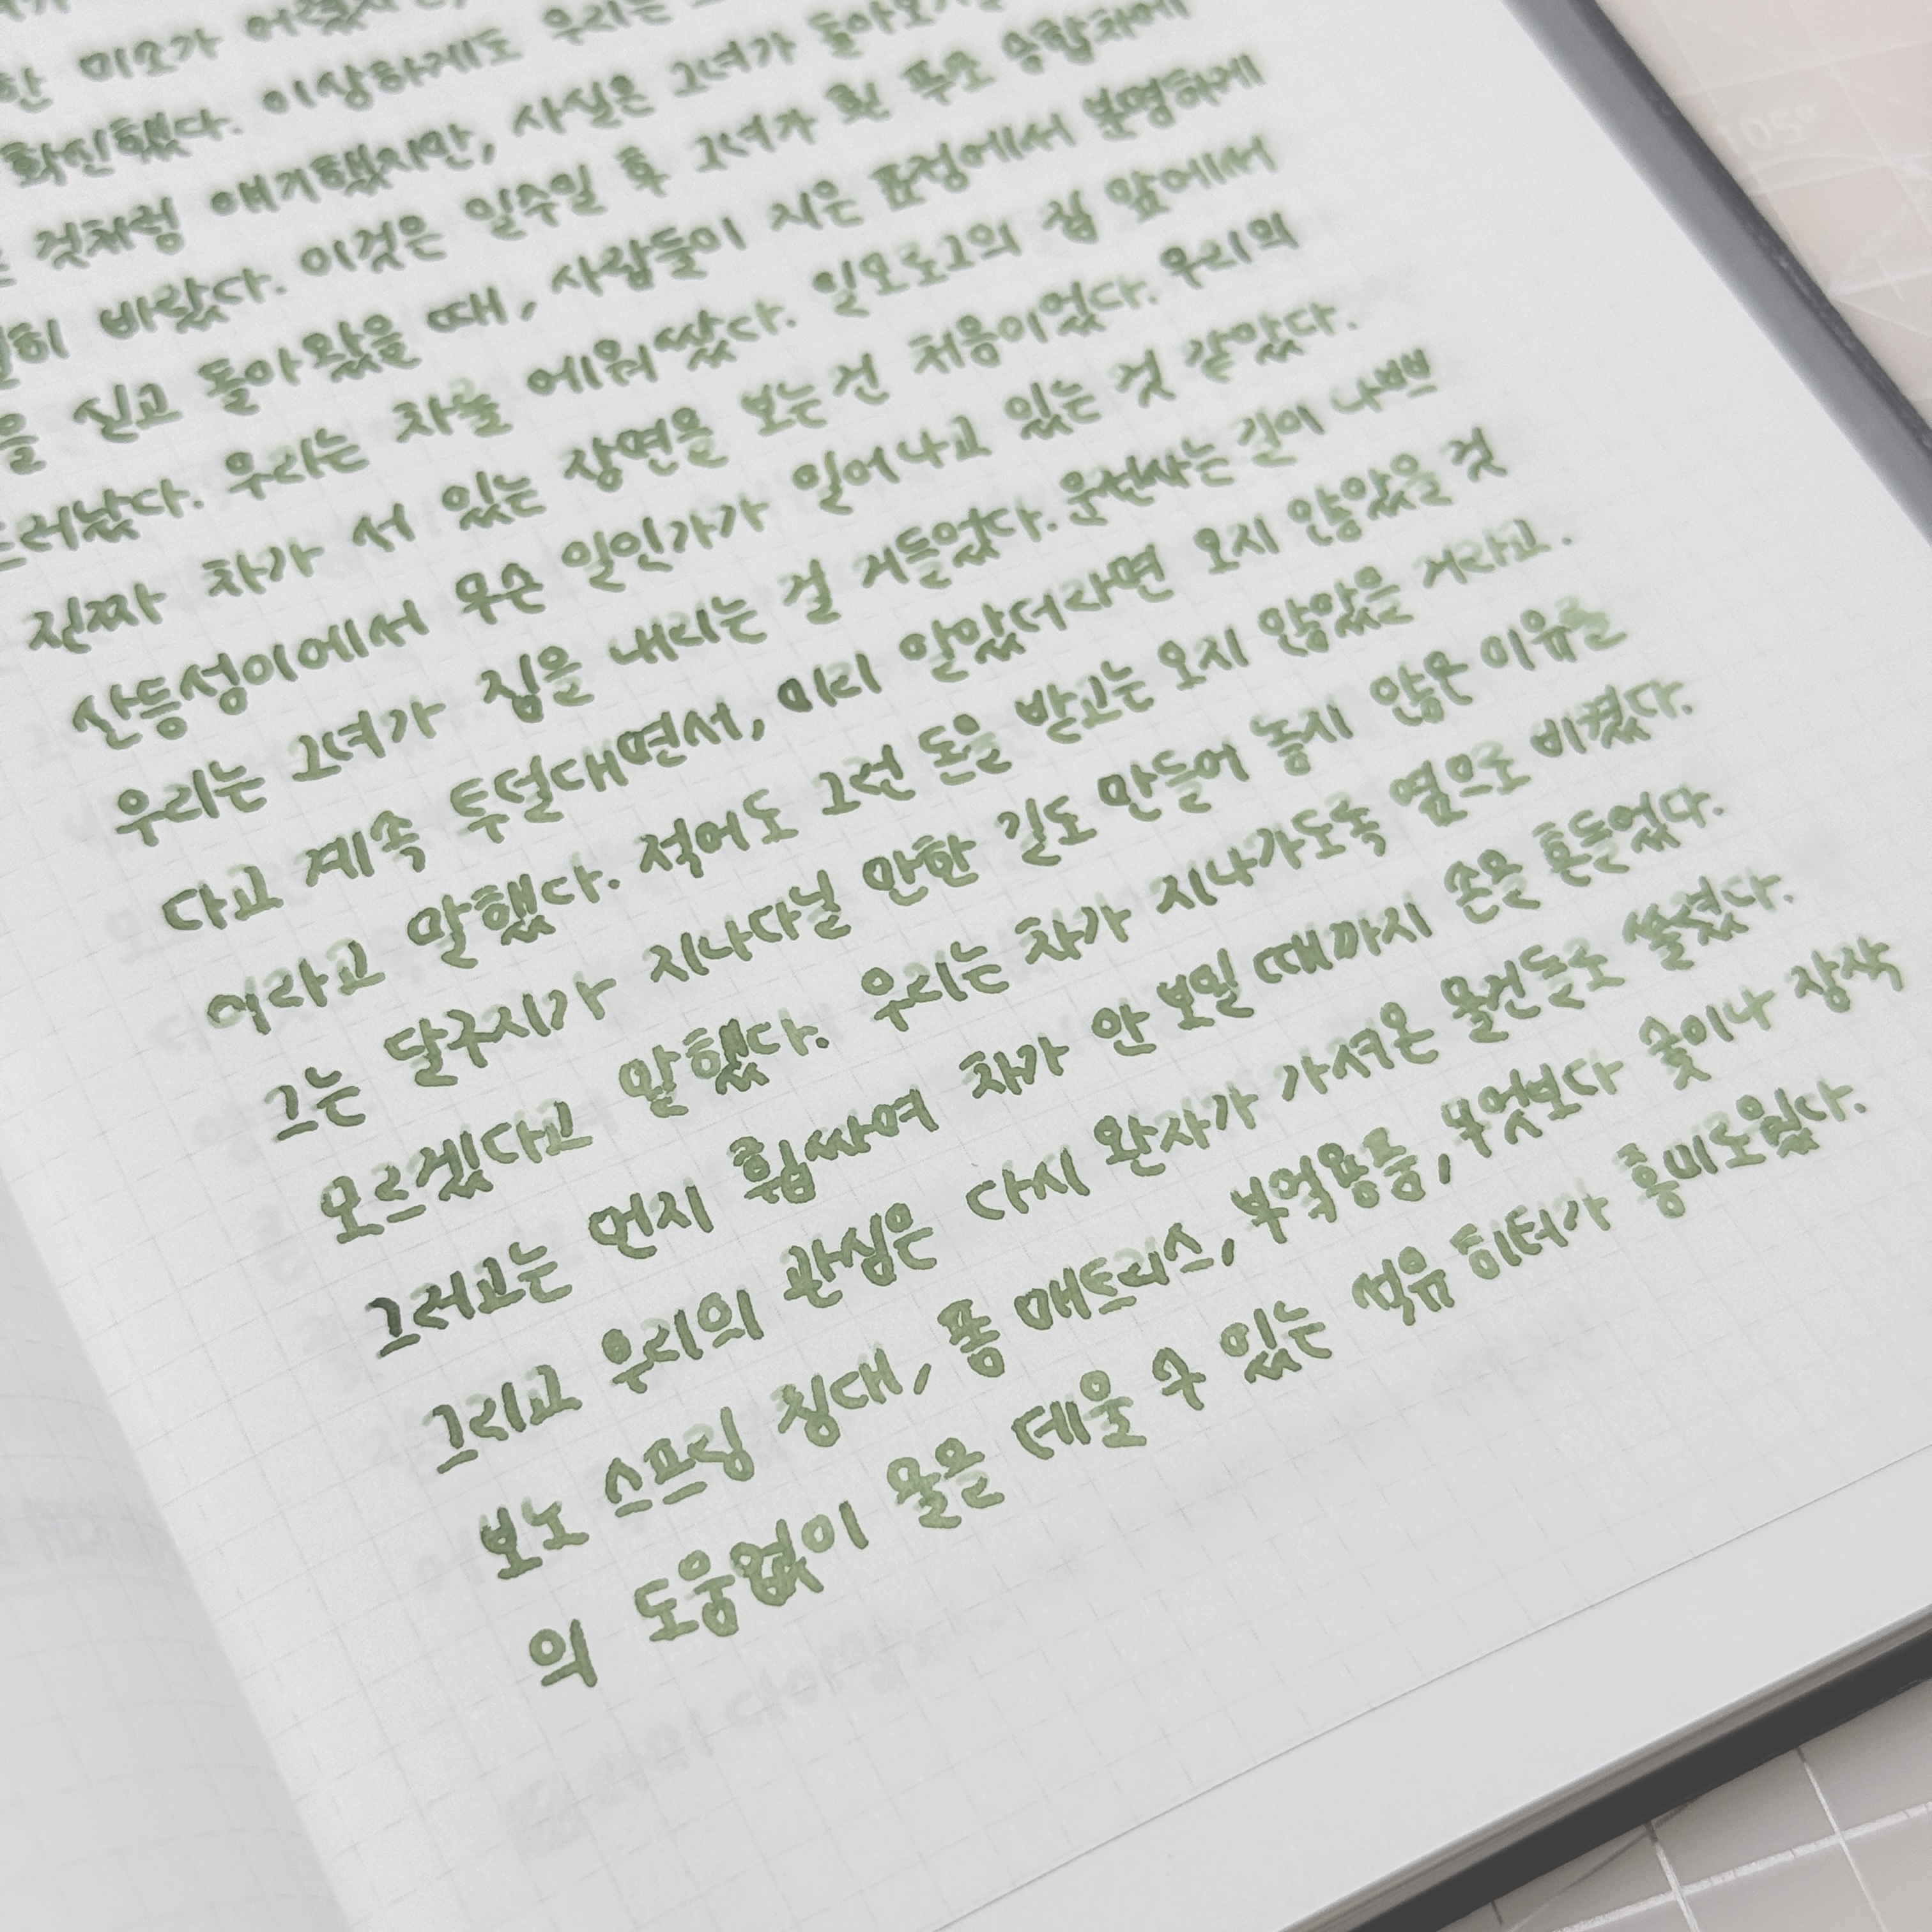 한 미소가
확신했다. 이상하게도 우리는
것처럼 얘기했지만, 사실은 그녀가 돌아오기를
히 바랐다. 이것은 일주일 후 그녀가 흰 폭스 승합차에
을 싣고 돌아왔을 때, 사람들이 지은 표정에서 분명하게
드러났다. 우리는 차를 에워쌌다. 일모로그의 집 앞에서
진짜 차가 서 있는 장면을 보는건 처음이었다. 우리의
산등성이에서 무슨 일인가가 일어나고 있는 것 같았다.
우리는 그녀가 짐을 내리는 걸 거들었다. 운전사는 길이 나쁘
다고 계속 투덜대면서, 미리 알았더라면 오지 않았을 것
이라고 말했다. 적어도 그런 돈을 받고는 오지 않았을 거라고.
그는 달구지가 지나다닐 만한 길도 만들어 놓지 않은 이유를
모르겠다고 말했다. 우리는 차가 지나가도록 옆으로 비켰다.
그러고는 먼지 휩싸여 차가 안 보일 때까지 손을 흔들었다.
그리고 우리의 관심은 다시 완자가 가져온 물건들로 쏠렸다.
보노 스프링 침대, 폼 매트리스, 부엌용품, 무엇보다 숯이나 장작
의 도움없이 물을 데울 수 있는 석유 히터가 흥미로웠다.